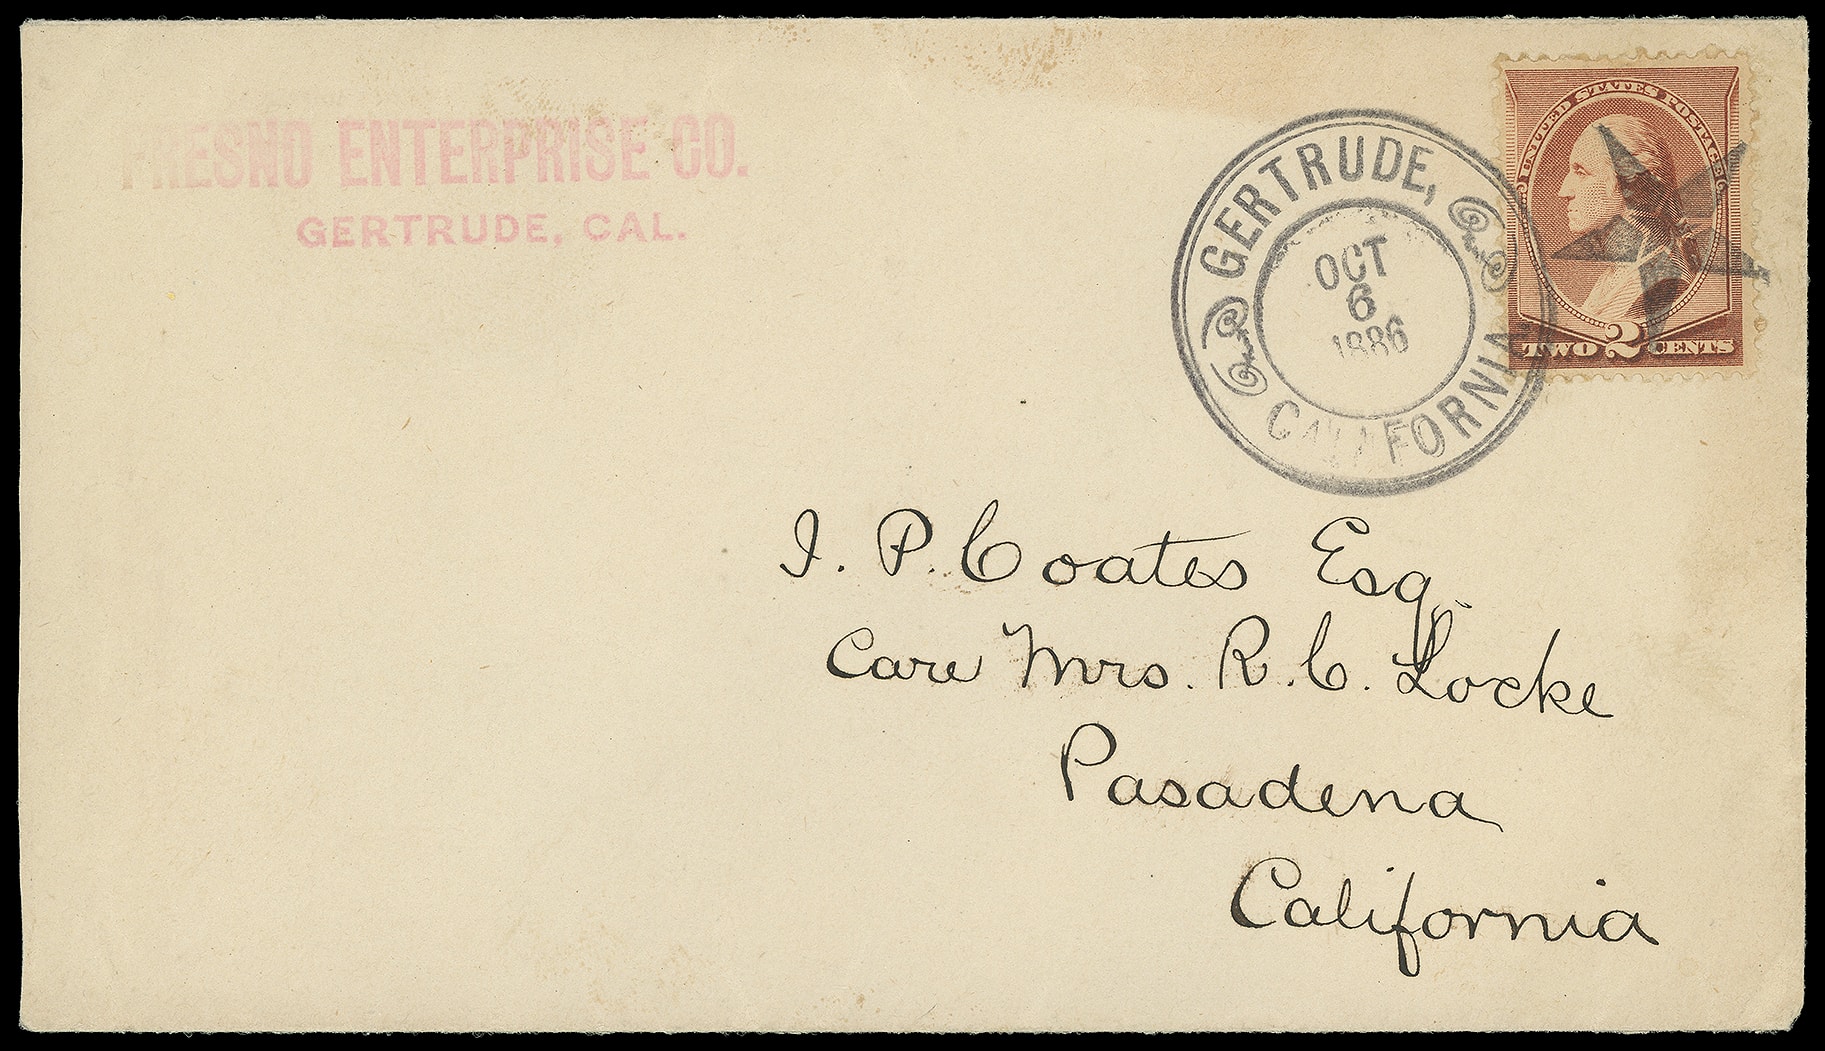 FRESNO ENTERPRISE CO.
GERTRUDE, CAL.
GERTRUDE,
CALIFORNIA
OCT
6
1886
UNITED STATES POSTAGE
TWO 2 CENTS
I. P. Coates Esq.
Care Mrs. R. C. Locke
Pasadena
California